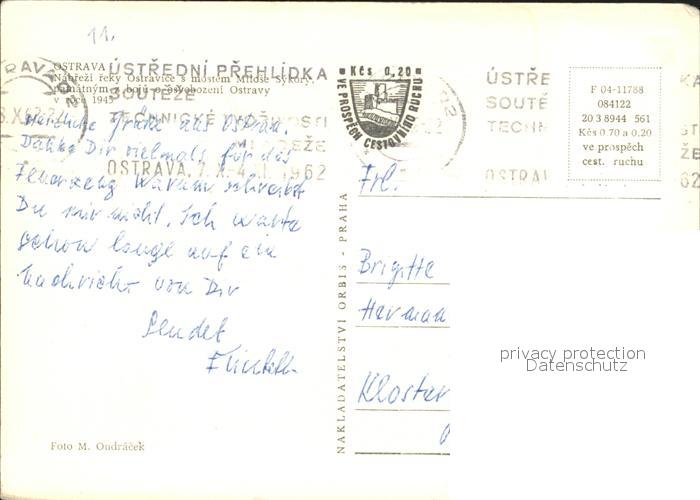 11.
OSTRAVA
Nábřeží řeky Ostravice s mostem Miloše Sýkory,
památným z bojů o osvobození Ostravy
v roce 1945
ÚSTŘEDNÍ PŘEHLÍDKA
SOUTĚŽE
TECHNICKÉ
OSTRAVA 1962
Herzliche Grüße aus Ostrau.
Danke Dir vielmals für das
Feuerzeug Warum schreibst
Du mir nicht. Ich warte
schon lange auf ein
Nachricht von Dir
Sendet
Foto M. Ondráček
NAKLADATELSTVÍ ORBIS - PRAHA
Kčs 0,20
VE PROSPĚCH CESTOVNÍHO RUCHU
ÚSTŘE
SOUTĚ
TECHN
OSTRAV
F 04-11788
084122
20 3 8944 561
Kčs 0.70 a 0,20
ve prospěch
cest. ruchu
KA
ŽE
62
Frl.
Brigitte
Herman
Kloster
privacy protection
Datenschutz